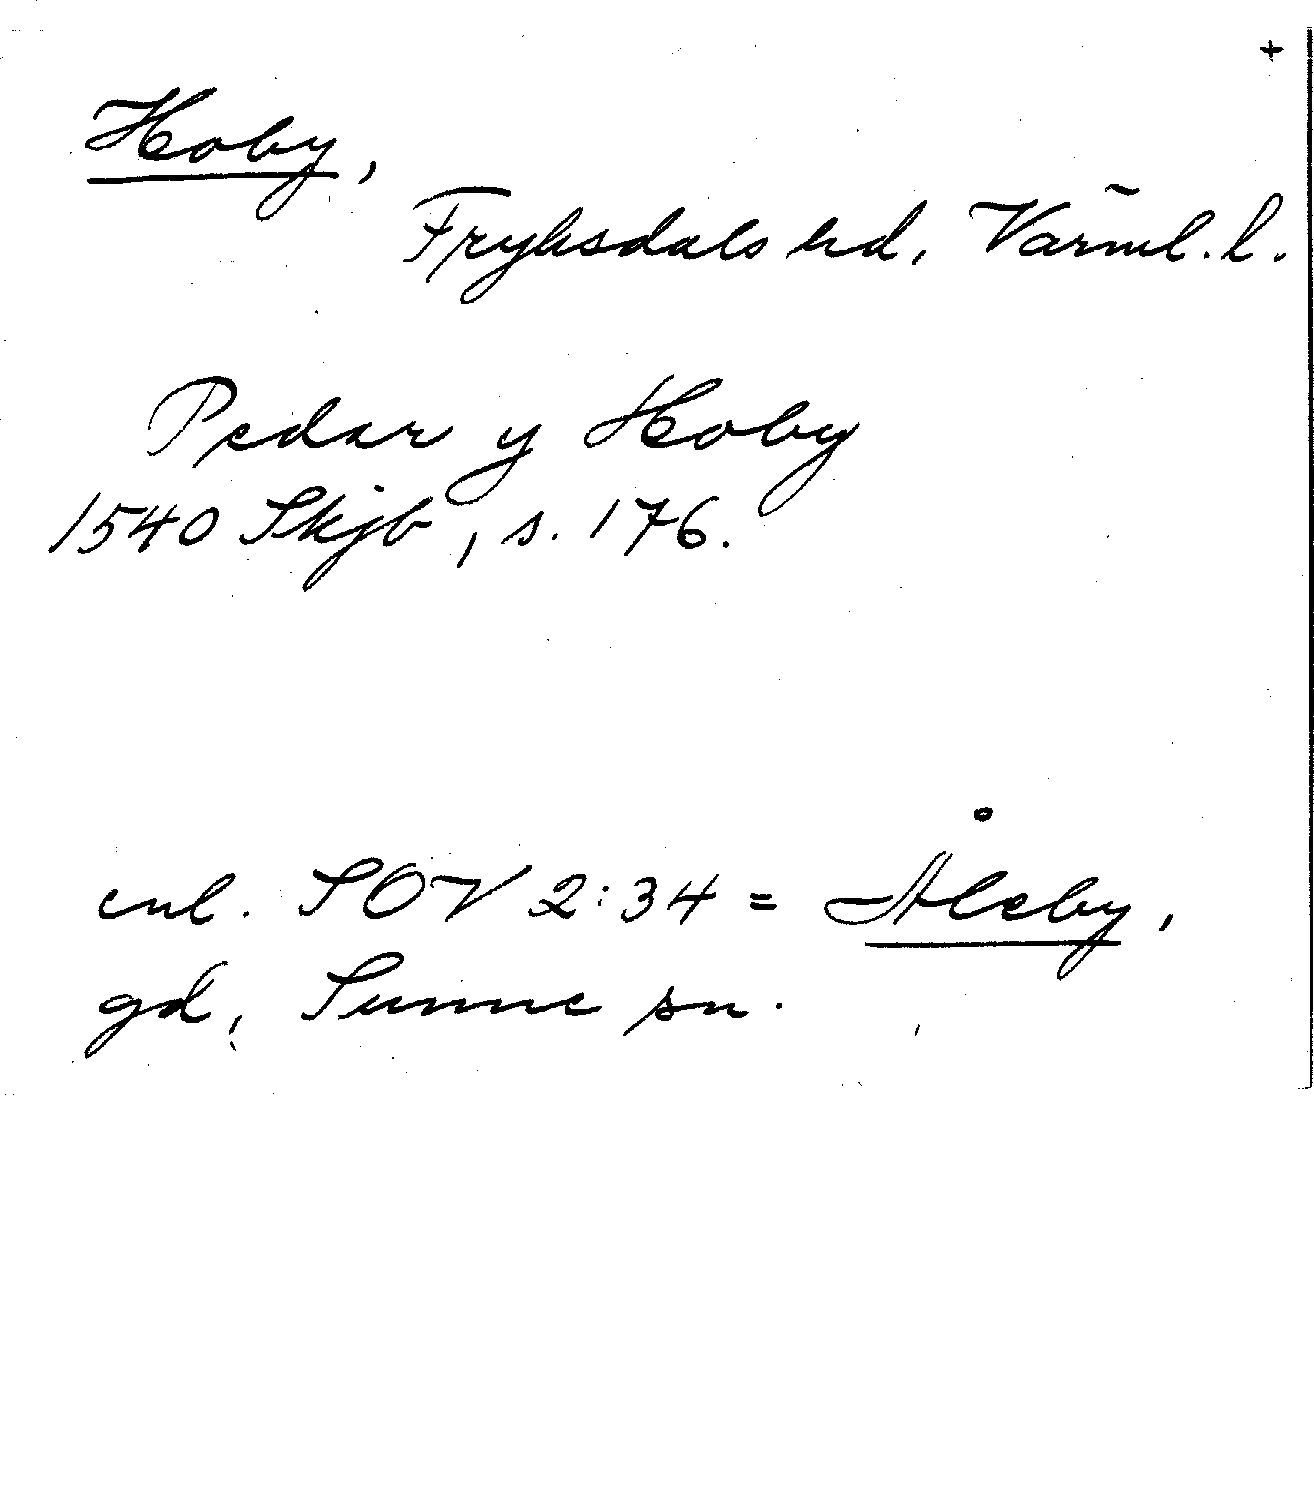 +
Hoby,
Fryksdals hd, Värml. l.
Pedar y Hoby
1540 Skjb, s. 176.
enl. SOV 2:34 = Åleby,
gd, Sunne sn.